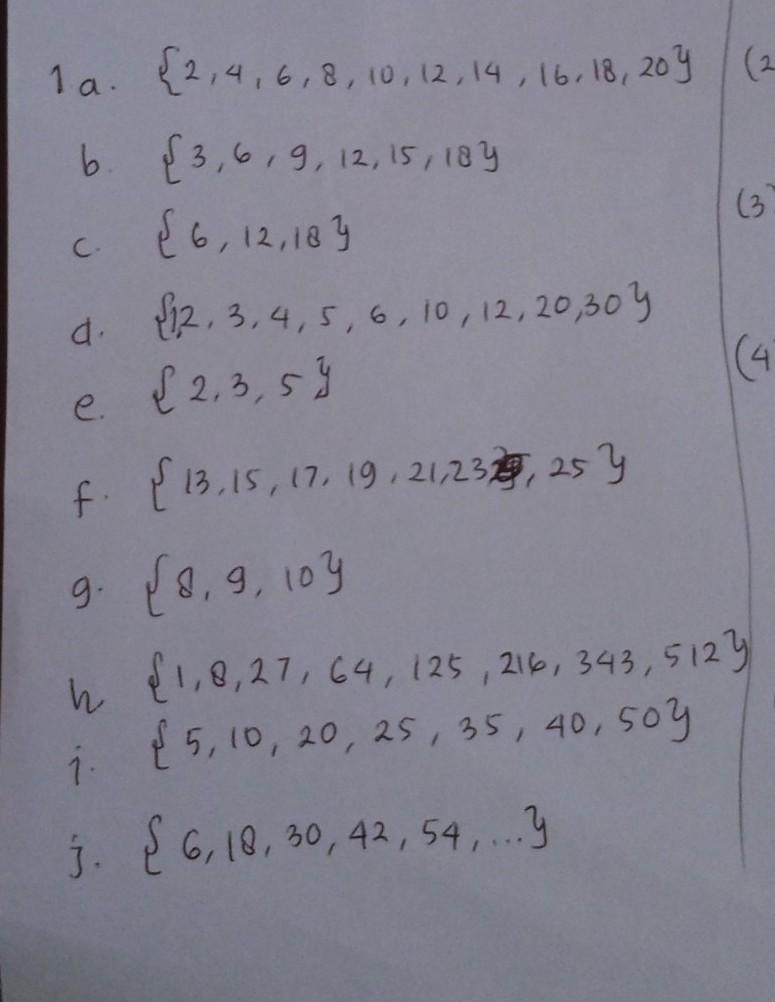 1.a. {2, 4, 6, 8, 10, 12, 14, 16, 18, 20} (2
b. {3, 6, 9, 12, 15, 18}
(3
c. {6, 12, 18}
d. {1,2, 3, 4, 5, 6, 10, 12, 20, 30}
(4
e. {2, 3, 5}
f. {13, 15, 17, 19, 21, 23, 25}
g. {8, 9, 10}
h {1, 8, 27, 64, 125, 216, 343, 512}
i. {5, 10, 20, 25, 35, 40, 50}
j. {6, 18, 30, 42, 54, ...}